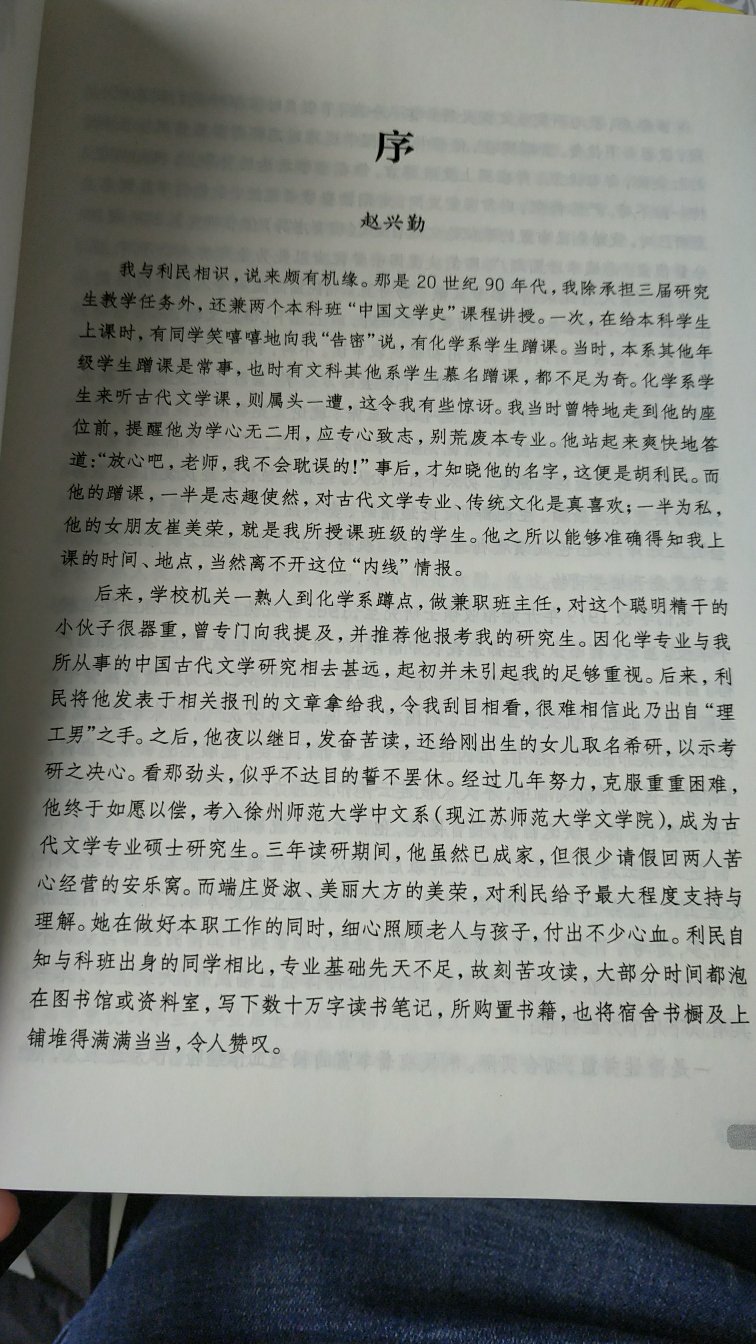 序
赵兴勤
我与利民相识，说来颇有机缘。那是 20 世纪 90 年代，我除承担三届研究
生教学任务外，还兼两个本科班“中国文学史”课程讲授。一次，在给本科学生
上课时，有同学笑嘻嘻地向我“告密”说，有化学系学生蹭课。当时，本系其他年
级学生蹭课是常事，也时有文科其他系学生慕名蹭课，都不足为奇。化学系学
生来听古代文学课，则属头一遭，这令我有些惊讶。我当时曾特地走到他的座
位前，提醒他为学心无二用，应专心致志，别荒废本专业。他站起来爽快地答
道：“放心吧，老师，我不会耽误的！”事后，才知晓他的名字，这便是胡利民。而
他的蹭课，一半是志趣使然，对古代文学专业、传统文化是真喜欢；一半为私，
他的女朋友崔美荣，就是我所授课班级的学生。他之所以能够准确得知我上
课的时间、地点，当然离不开这位“内线”情报。
后来，学校机关一熟人到化学系蹲点，做兼职班主任，对这个聪明精干的
小伙子很器重，曾专门向我提及，并推荐他报考我的研究生。因化学专业与我
所从事的中国古代文学研究相去甚远，起初并未引起我的足够重视。后来，利
民将他发表于相关报刊的文章拿给我，令我刮目相看，很难相信此乃出自“理
工男”之手。之后，他夜以继日，发奋苦读，还给刚出生的女儿取名希研，以示考
研之决心。看那劲头，似乎不达目的誓不罢休。经过几年努力，克服重重困难，
他终于如愿以偿，考入徐州师范大学中文系（现江苏师范大学文学院），成为古
代文学专业硕士研究生。三年读研期间，他虽然已成家，但很少请假回两人苦
心经营的安乐窝。而端庄贤淑、美丽大方的美荣，对利民给予最大程度支持与
理解。她在做好本职工作的同时，细心照顾老人与孩子，付出不少心血。利民自
知与科班出身的同学相比，专业基础先天不足，故刻苦攻读，大部分时间都泡
在图书馆或资料室，写下数十万字读书笔记，所购置书籍，也将宿舍书橱及上
铺堆得满满当当，令人赞叹。